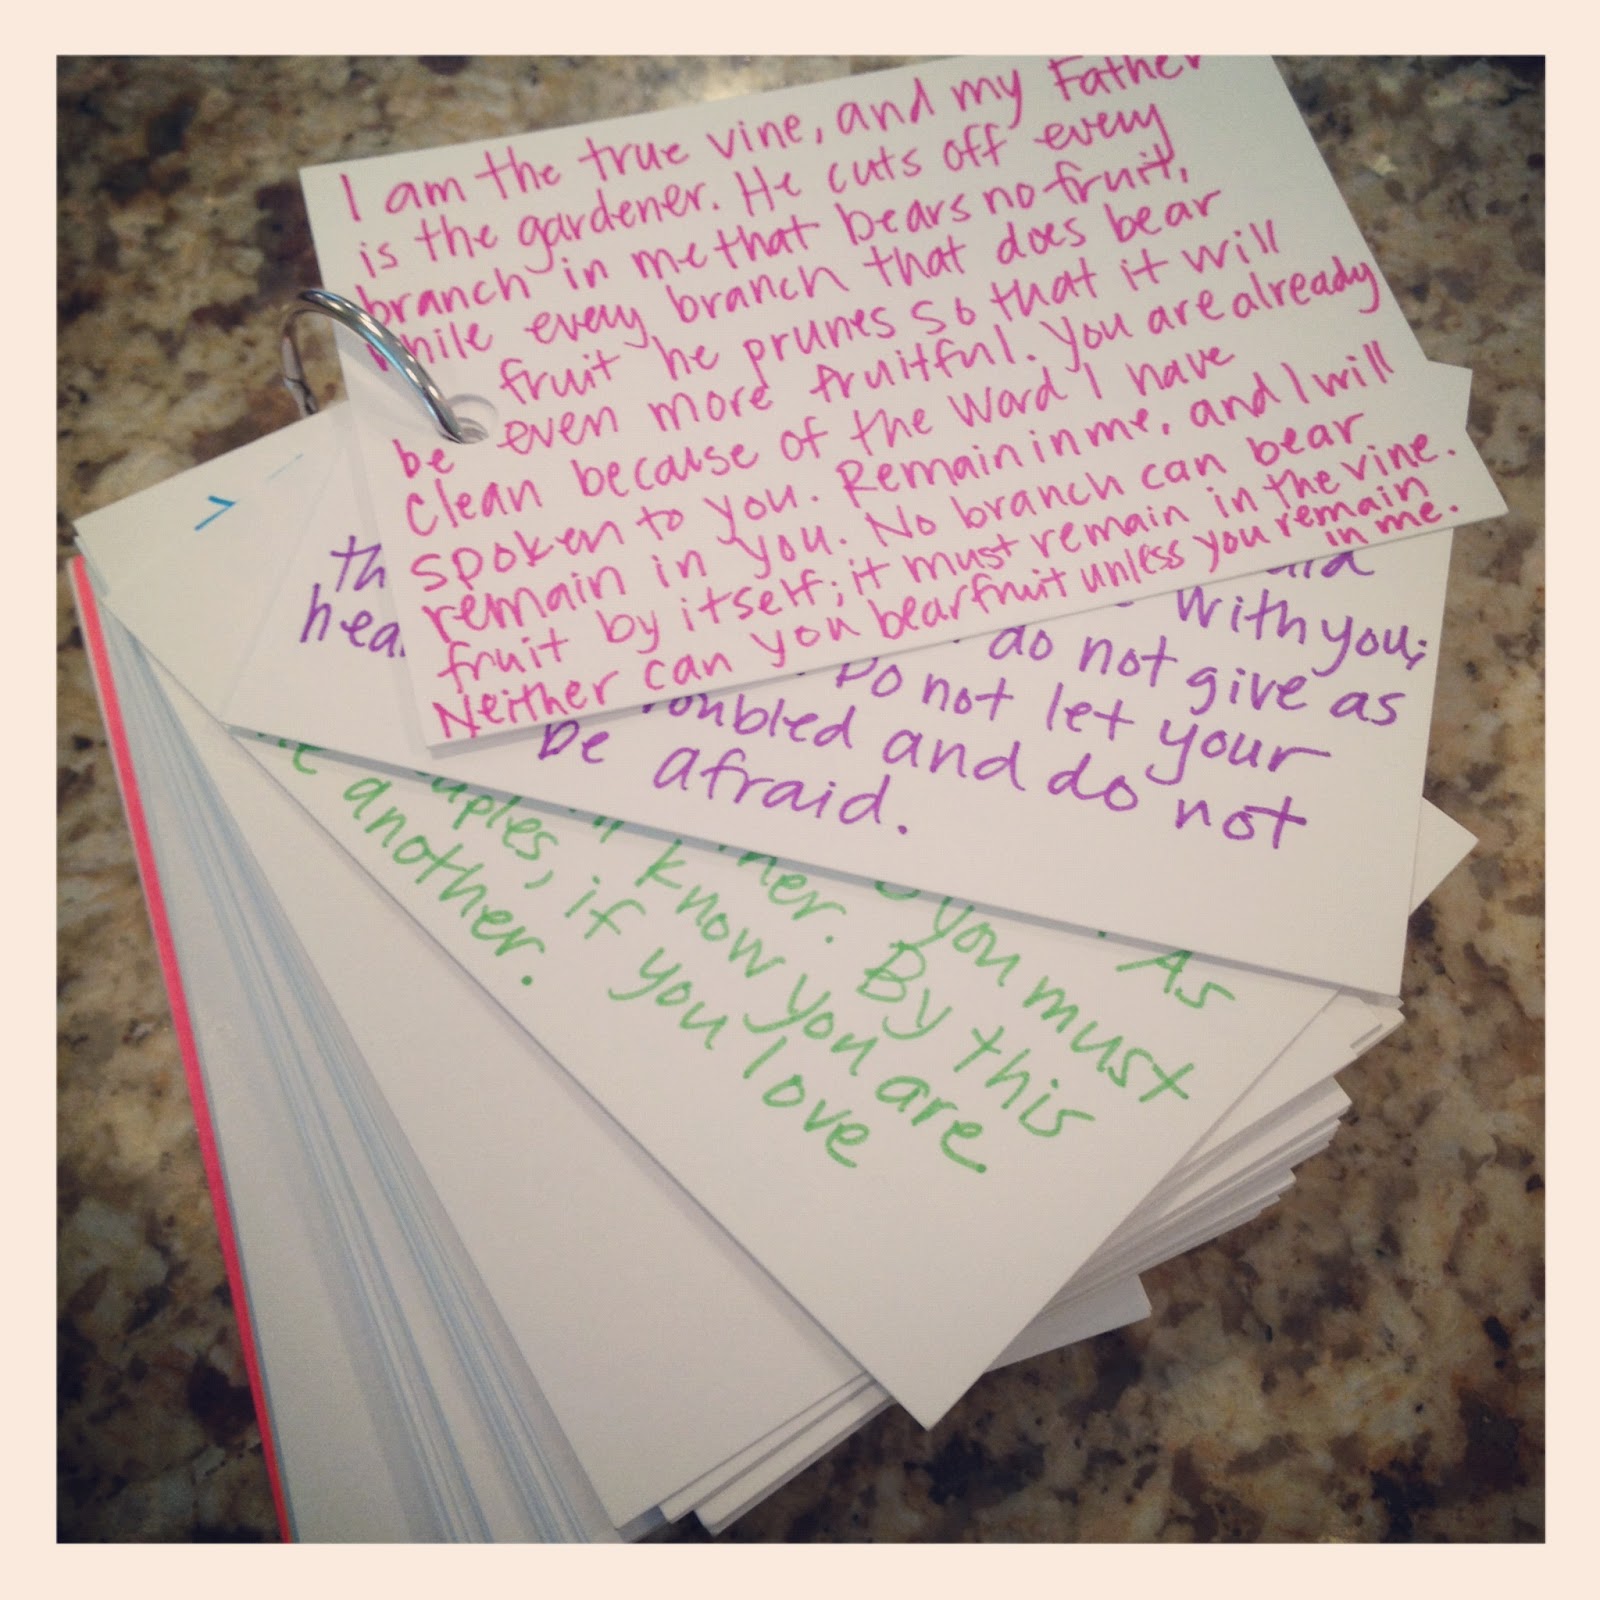 I am the true vine, and my Father
is the gardener. He cuts off every
branch in me that bears no fruit,
while every branch that does bear
fruit he prunes so that it will
be even more fruitful. You are already
clean because of the Word I have
spoken to you. Remain in me, and I will
remain in you. No branch can bear
fruit by itself; it must remain in the vine.
Neither can you bear fruit unless you remain
in me.
with you;
do not give as
Do not let your
and do not
be afraid.
As
you must
By this
know you are
if you love
another.